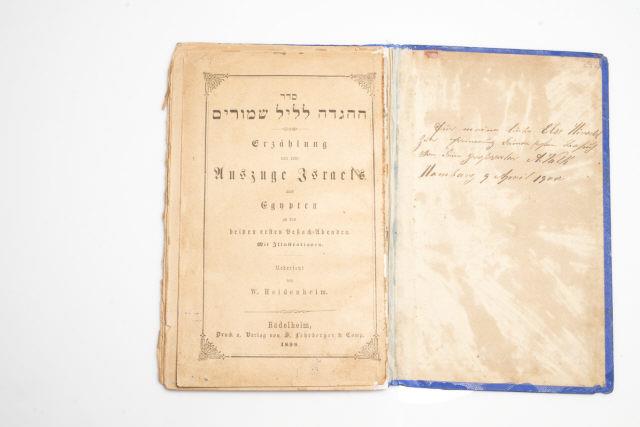 סדר
ההגדה לליל שמורים
Erzählung
von dem
Auszuge Israels
aus
Egypten
an den
beiden ersten Peßach-Abenden.
Mit Illustrationen.
Uebersetzt
von
W. Heidenheim.
Rödelheim,
Druck u. Verlag von J. Lehrberger & Comp.
1898.
Für meine liebe Else
zur Erinnerung
von Ihrem Großvater A. Falk
Hamburg 9 April